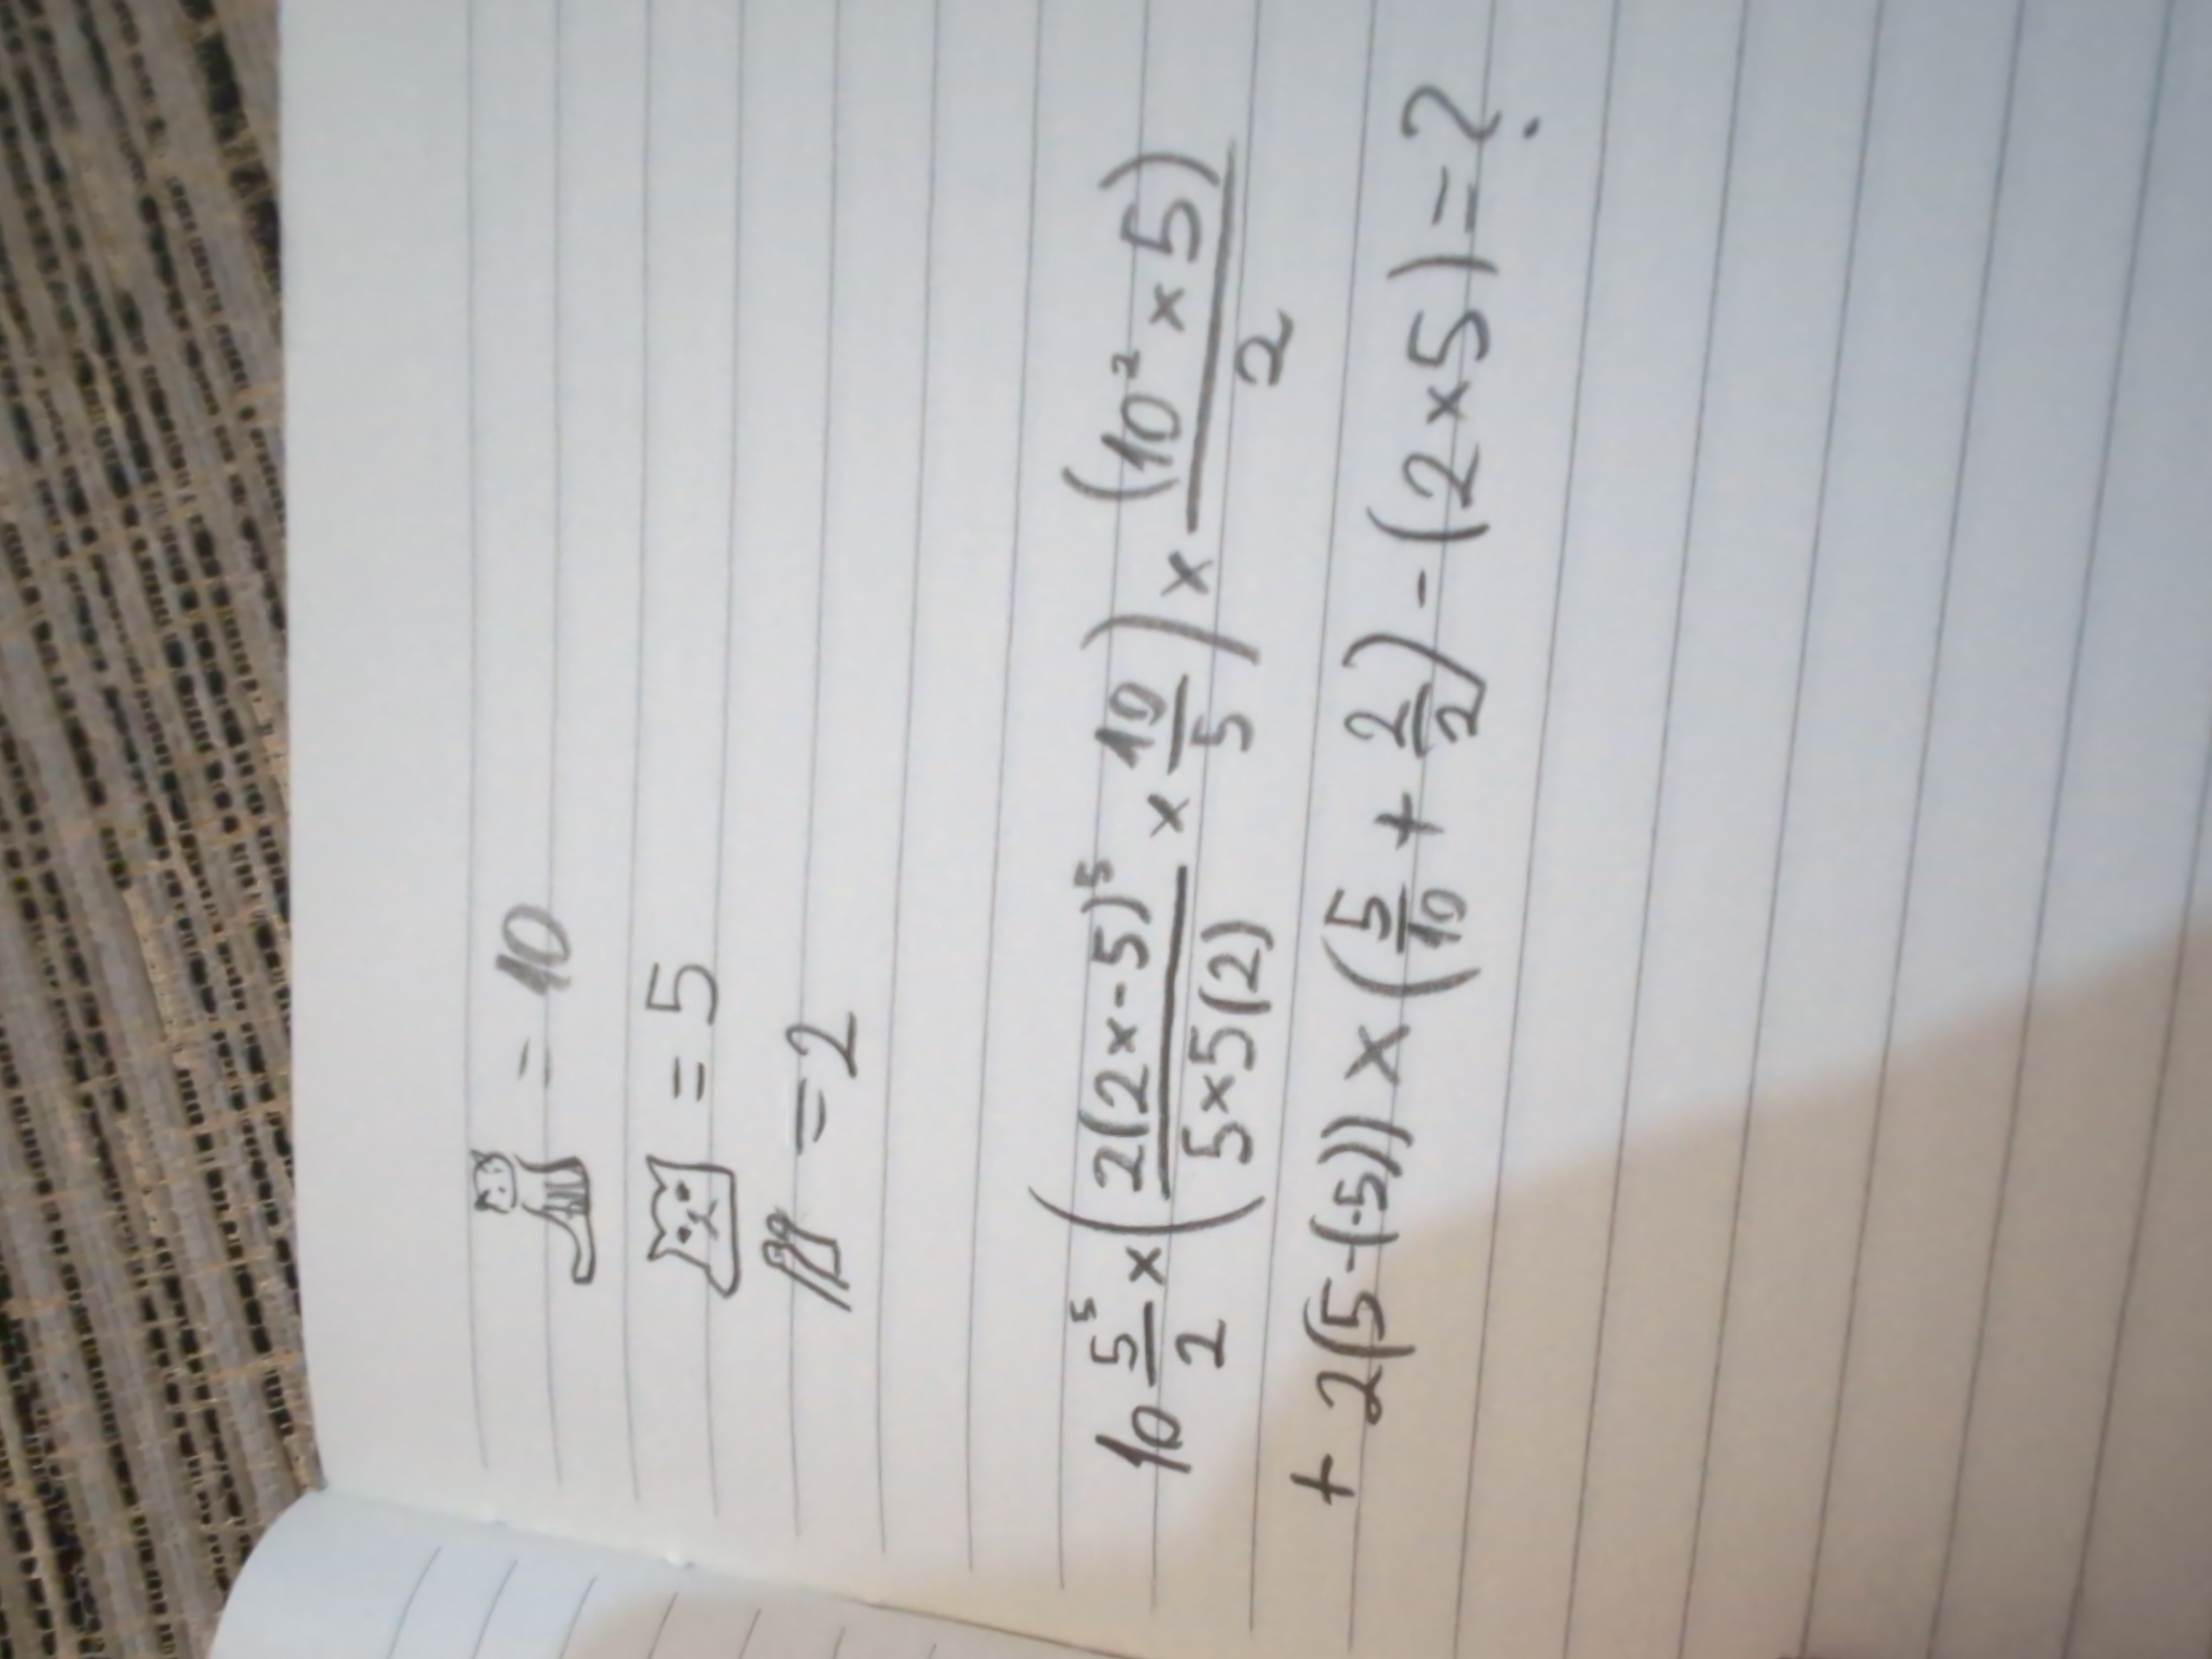 = 10
= 5
= 2
10 5⁵/2 × (2(2×-5)⁵/5×5(2) × 10/5) × (10² × 5)/2
+ 2(5-(-5)) × (5/10 + 2/2) - (2×5) = ?